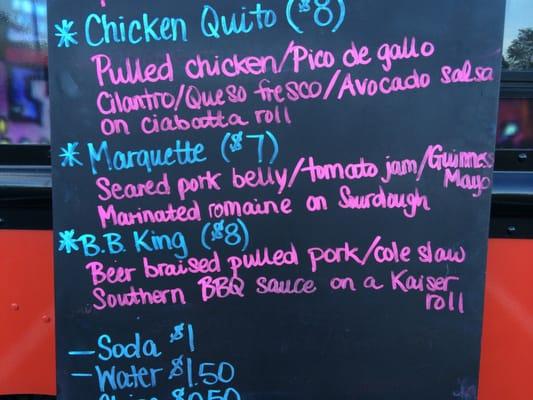 * Chicken Quito ($8)
Pulled chicken/Pico de gallo
Cilantro/Queso fresco/Avocado salsa
on ciabatta roll
* Marquette ($7)
Seared pork belly/tomato jam/Guinness
Mayo
Marinated romaine on Sourdough
* B.B. King ($8)
Beer braised pulled pork/cole slaw
Southern BBQ sauce on a Kaiser
roll
- Soda $1
- Water $1.50